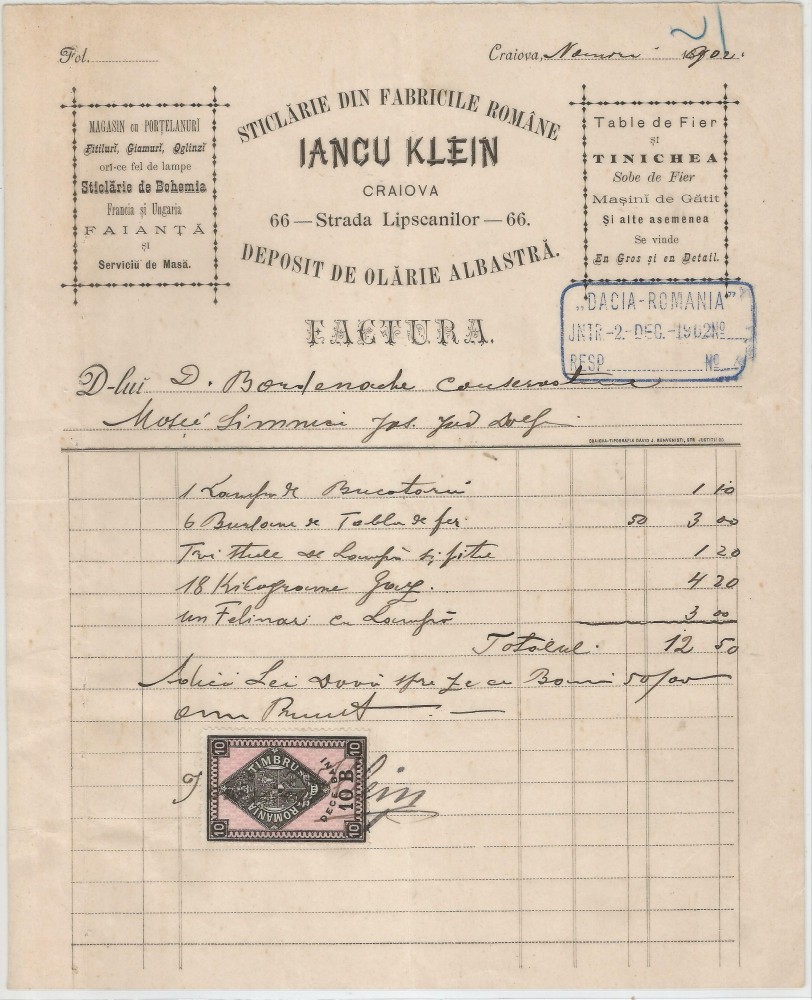 21
Fol.
Craiova, 1902.
MAGASIN cu PORȚELANURĬ
Fitilurĭ, Giamurĭ, Oglinzĭ
orĭ-ce fel de lampe
Sticlărie de Bohemia
Francia și Ungaria
FAIANȚĂ
ȘI
Serviciŭ de Masă.
STICLĂRIE DIN FABRICILE ROMÂNE
IANCU KLEIN
CRAIOVA
66 — Strada Lipscanilor — 66.
DEPOSIT DE OLĂRIE ALBASTRĂ.
Table de Fier
ȘI
TINICHEA
Sobe de Fier
Mașinĭ de Gătit
Și alte asemenea
Se vinde
En Gros și en Detail.
"DACIA-ROMANIA"
JNTR-2-DEC.-1902 No
RESP. No
FACTURA.
D-luĭ D. Bordenache
Moșie Simnicu Jud Dolj
CRAIOVA-TIPOGRAFIA DAVID J. BENVENISTI, STR. JUSTIȚIEI
1 Lampa de Bucatarie 1 10
6 Burlane de Tabla de fer. 50 3 00
Trei sticle de Lampă și fitile 1 20
18 Kilograme Gaz. 4 20
un Felinar cu Lampă 3 00
Totalul. 12 50
Adică Lei două spre zece Bani 50/00
am Primit
I Klein
10 10
TIMBRU
ROMANIA
10 B
10 10